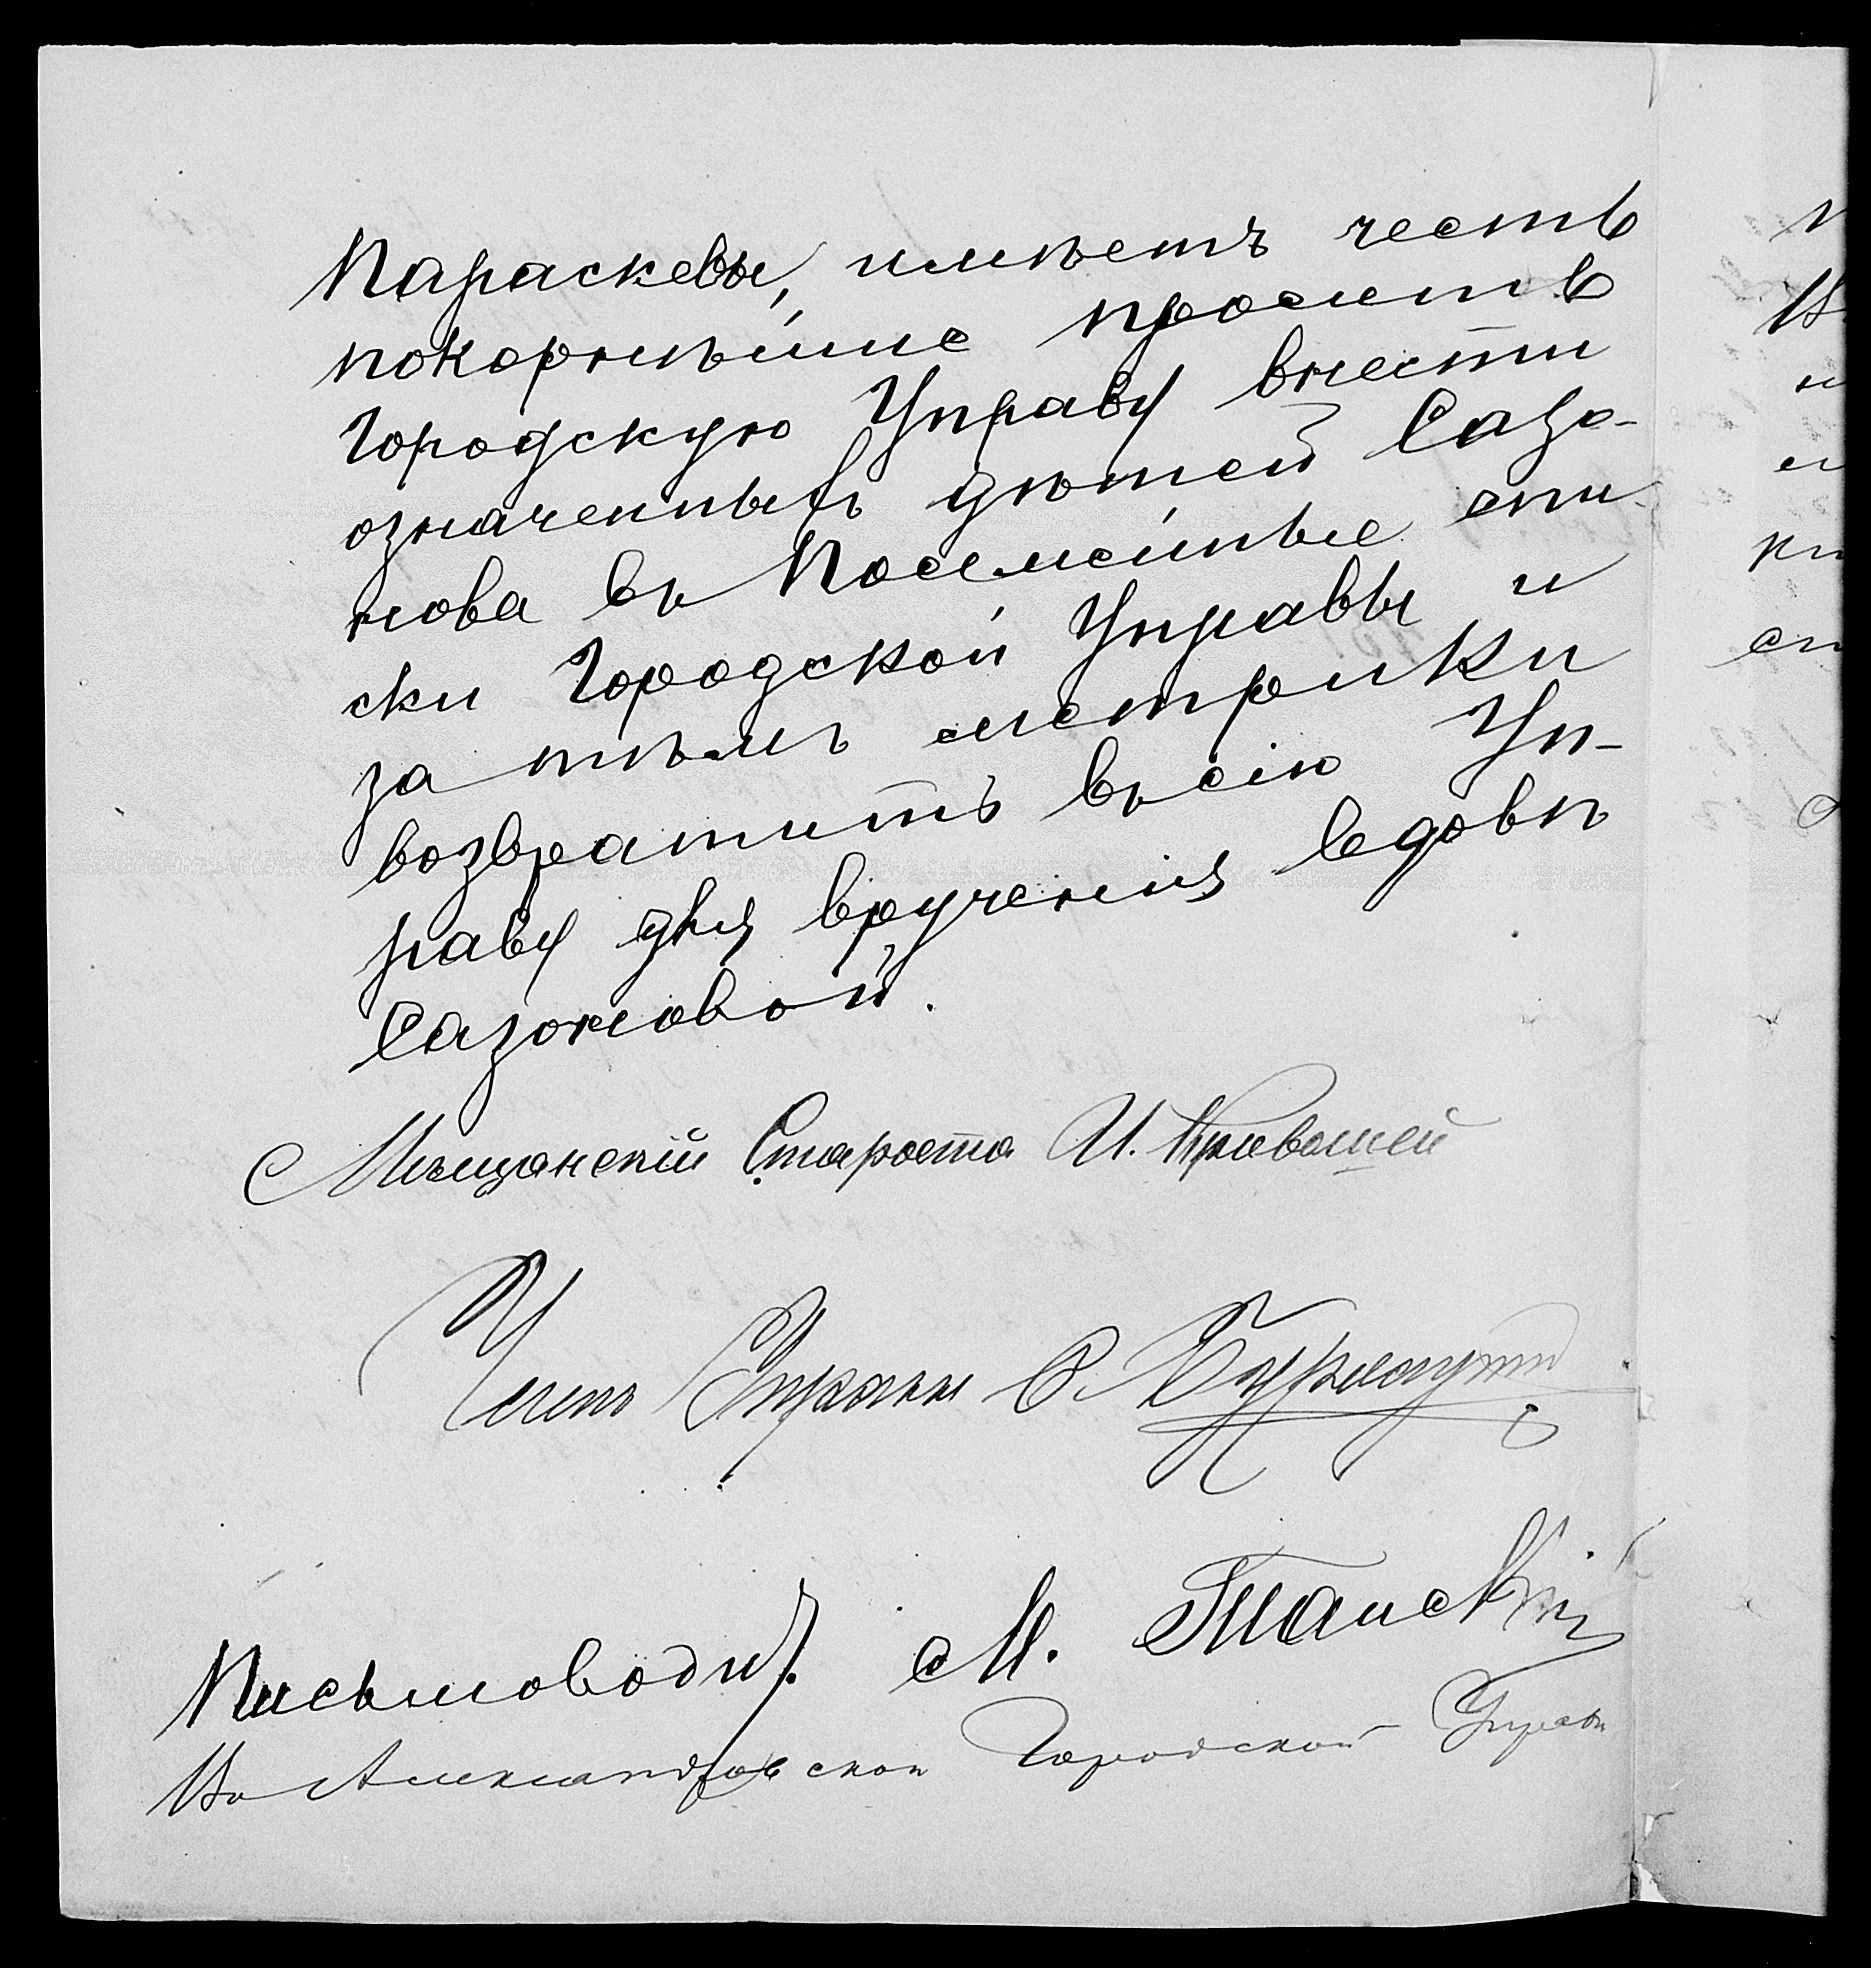 Параскевы, имѣетъ честь
покорнѣйше просить
Городскую Управу внести
означенныхъ дѣтей Сазо-
нова въ Посемейные спи-
ски Городской Управы и
за тѣмъ метрики
возвратить въ сію Уп-
раву для врученія вдовѣ
Сазоновой.
Мѣщанскій Староста И. Кривошей
Членъ Управы
Письмоводит. М.
Въ Александровскою Городской Управы